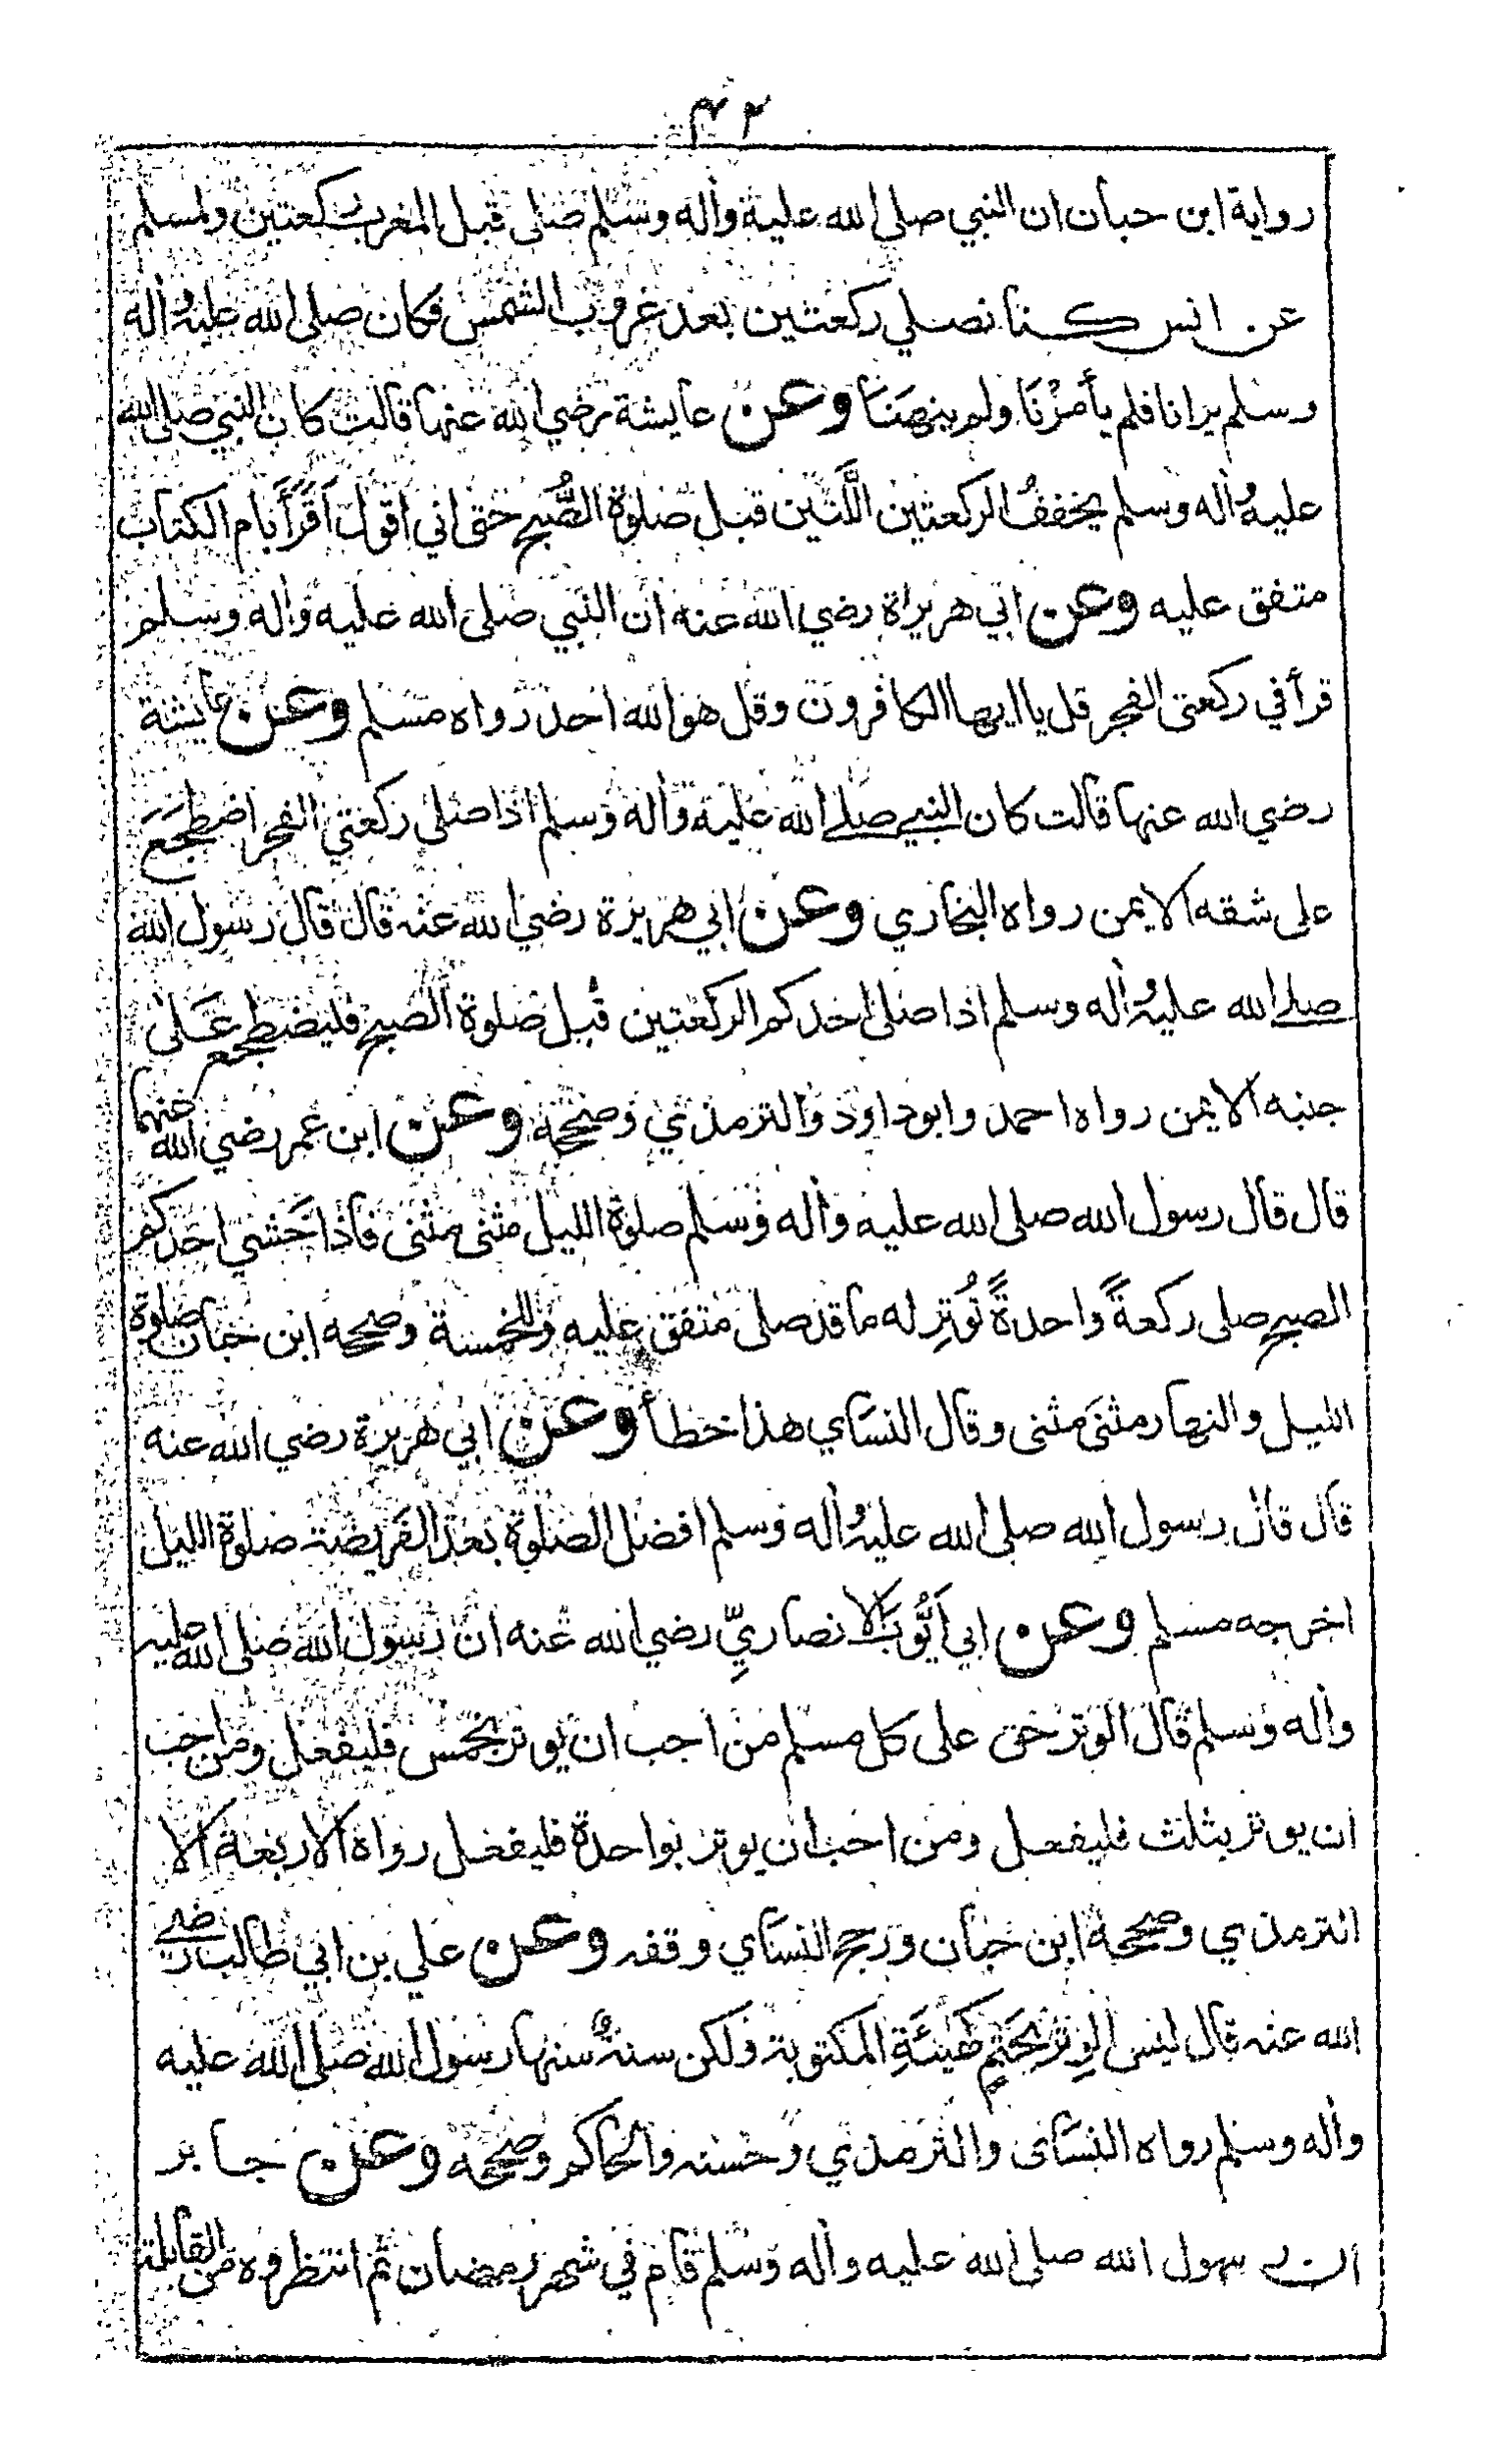 ٤٢
رواية ابن حبان ان النبي صلى الله عليه وأله وسلم صلى قبل المغرب ركعتين ولمسلم
عن انس كنا نصلي ركعتين بعد غروب الشمس فكان صلى الله عليه وأله
وسلم يرانا فلم يأمُرْنَا ولم ينهَنَا وعن عايشة رضي الله عنها قالت كان النبي صلى الله
عليه وأله وسلم يخففُ الركعتين اللَّتَيْن قبل صلوة الصُّبح حتى اني اقول اَقَرَأَ بام الكتاب
متفق عليه وعن ابي هريراة رضي الله عنه ان النبي صلى الله عليه وأله وسلم
قرأ في ركعتى الفجر قل يا ايها الكافرون وقل هو الله احد رواه مسلم وعن عايشة
رضي الله عنها قالت كان النبي صلى الله عليه وأله وسلم اذا صلى ركعتي الفجر اضطجَعَ
على شقه الايمن رواه البخاري وعن ابي هريرة رضي الله عنه قال قال رسول الله
صلى الله عليه وأله وسلم اذا صلى احدكم الركعتين قبل صلوة الصبح فليضطجع على
جنبه الايمن رواه احمد وابوداود والترمذي وصححه وعن ابن عمر رضي الله عنهما
قال قال رسول الله صلى الله عليه وأله وسلم صلوة الليل مثنى مثنى فاذا خشي احدكم
الصبح صلى ركعةً واحدةً تُوتِر له ما قد صلى متفق عليه وللخمسة وصححه ابن حبان صلوة
الليل والنهار مثنَى مثنى وقال النسَاي هذا خطأ وعن ابي هريرة رضي الله عنه
قال قال رسول الله صلى الله عليه وأله وسلم افضل الصلوة بعد الفريضة صلوة الليل
اخرجه مسلم وعن ابي اَيُّوبَ الانصاريِّ رضي الله عنه ان رسول الله صلى الله عليه
وأله وسلم قال الوتر حق على كل مسلم من احب ان يوتر بخمس فليفعل ومن احب
ان يوتر بثلث فليفعل ومن احب ان يوتر بواحدة فليفعل رواه الاربعة الا
الترمذي وصححه ابن حبان ورجح النسَاي وقفه وعن علي بن ابي طالب رضي
الله عنه قال ليس الوِتْرُ بحَتْمٍ كَهَيْئَةِ المكتوبة ولكن سنةٌ سنها رسول الله صلى الله عليه
وأله وسلم رواه النسَاى والترمذي وحسنه والحاكم وصححه وعن جابر
ان رسول الله صلى الله عليه وأله وسلم قام في شهر رمضان ثم انتظروه من القابلة